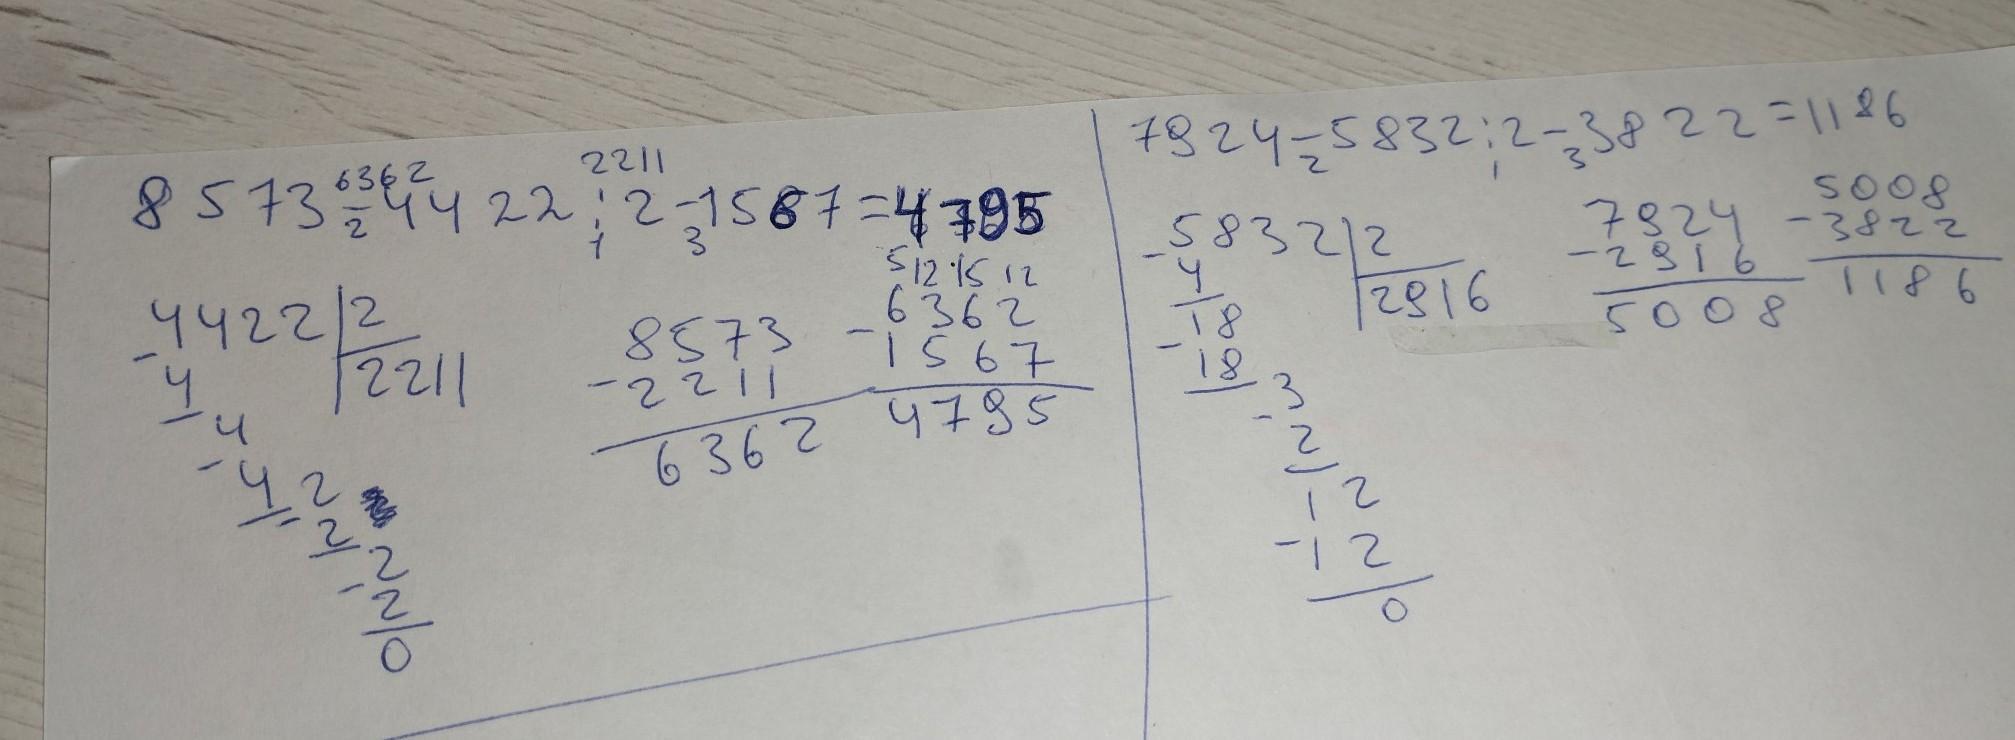 6362 2211
8573-4422:2-1567=4795
2 1 3
4422|2
-4 2211
4
-4
2
-2
2
-2
0
8573
-2211
6362
5 12 15 12
6362
-1567
4795
7924-5832:2-3822=1186
2 1 3
-5832|2
4 2916
18
-18
3
-2
12
-12
0
7924
-2916
5008
5008
-3822
1186